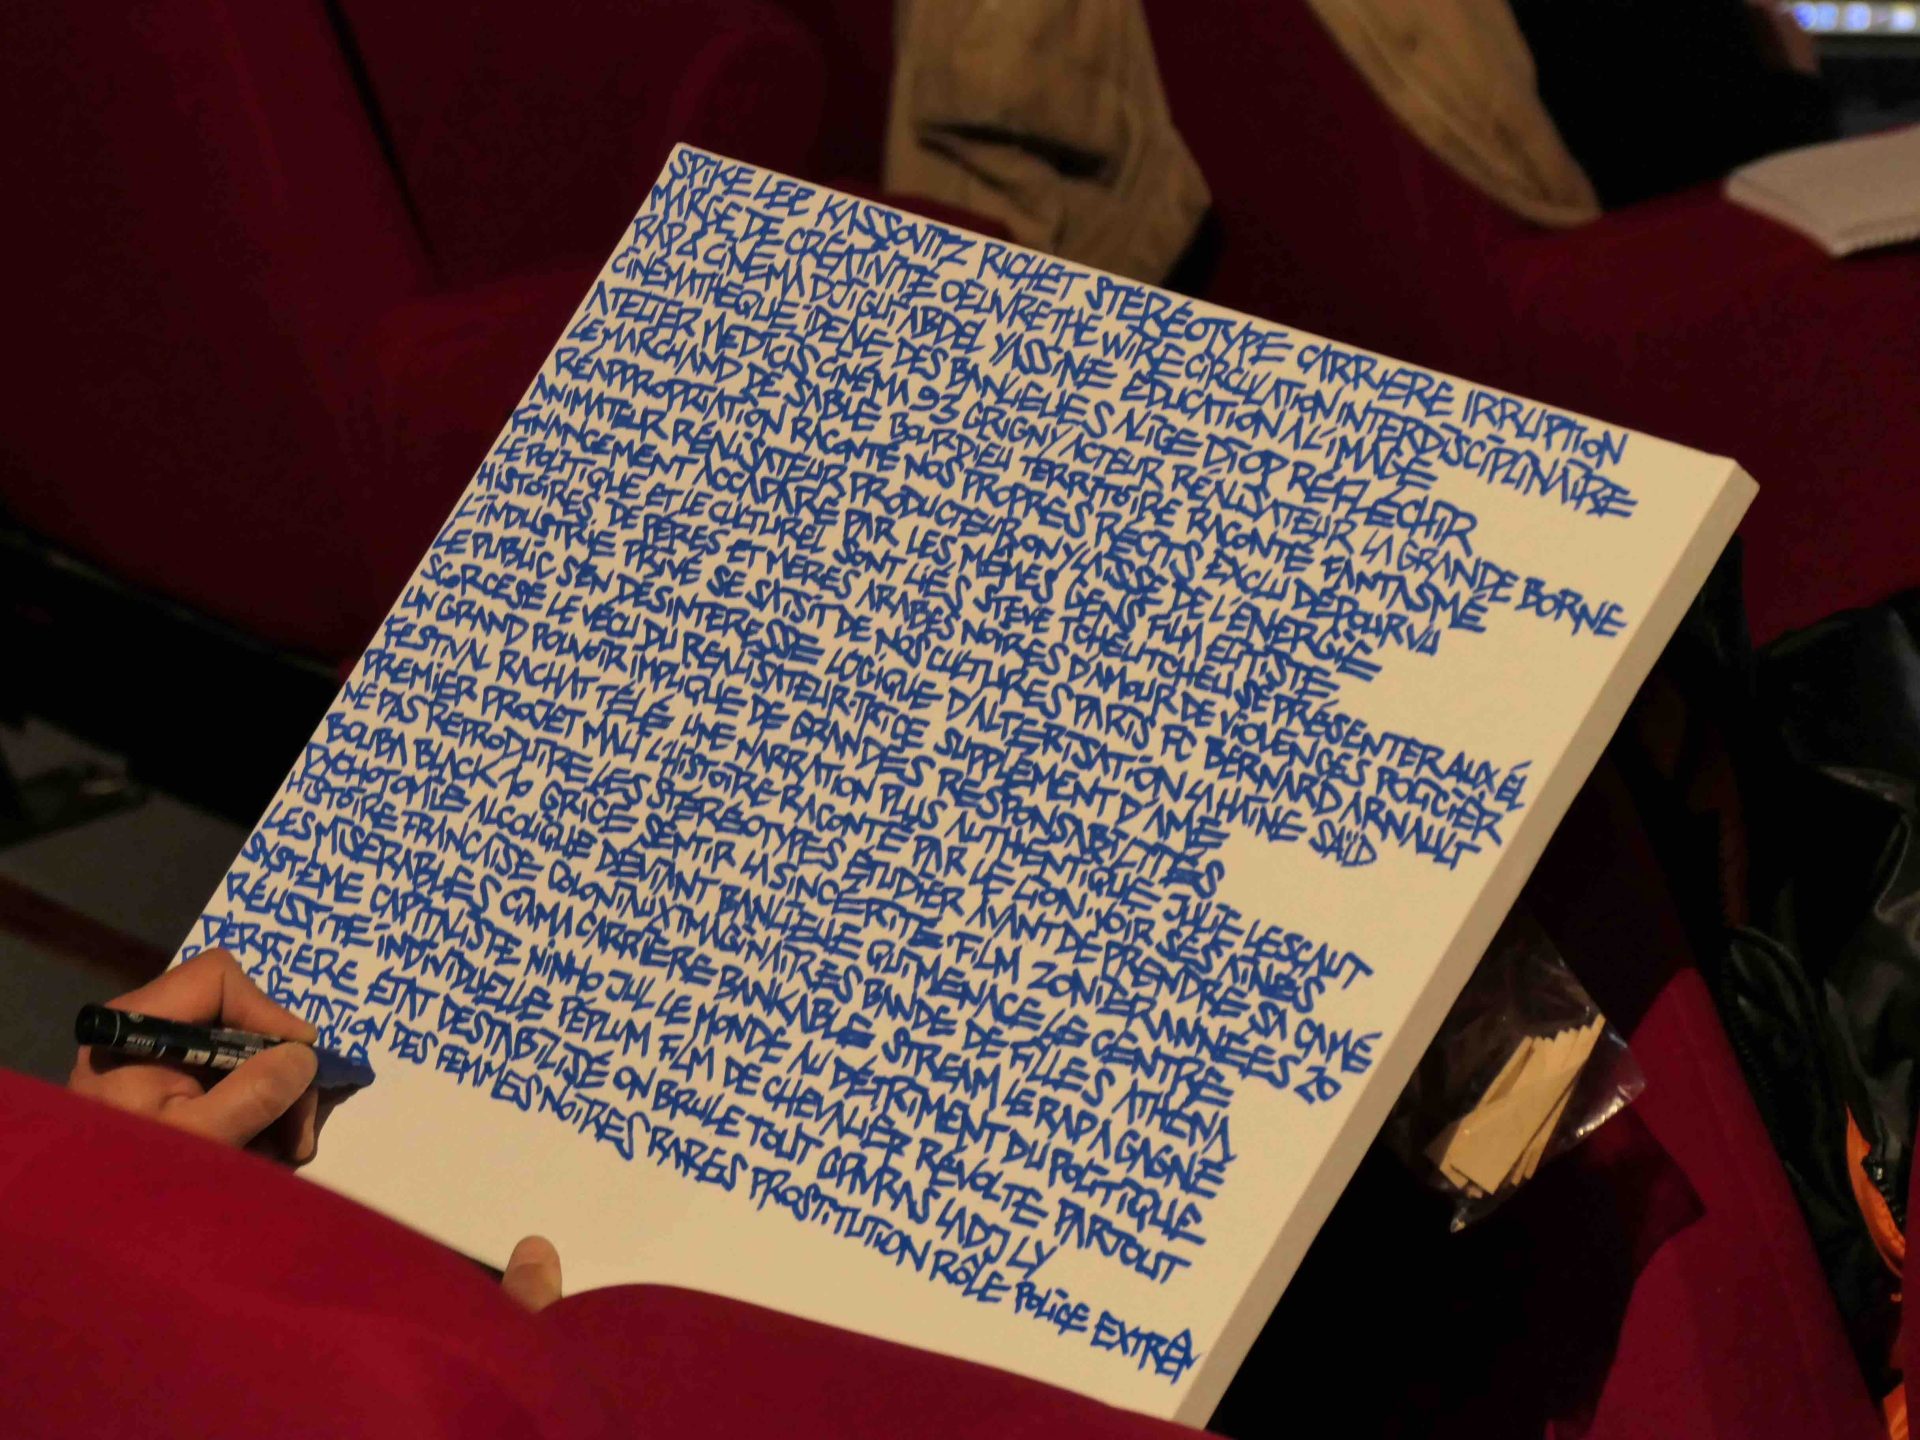 SPIKE LEE KASSOVITZ RICHET STÉRÉOTYPE CARRIÈRE IRRUPTION
MARGE DE CRÉATIVITÉ OEUVRE THE WIRE CIRCULATION INTERDISCIPLINAIRE
RAP & CINÉMA DJIGUI ABDEL YASSINE ÉDUCATION À L'IMAGE
CINÉMATHÈQUE DES BANLIEUES ALICE DIOP RÉFLÉCHIR
ATELIER MÉDICIS CINÉMA 93 GRIGNY ACTEUR RÉALISATEUR LA GRANDE BORNE
LE MARCHAND DE SABLE BOURDIEU TERRITOIRE RACONTÉ FANTASMÉ
RÉAPPROPRIATION RACONTÉ NOS PROPRES RÉCITS EXCLU DÉPOURVU
ANIMATEUR RÉALISATEUR PRODUCTEUR DE L'ÉNERGIE
FINANCEMENT ACCAPARÉ PAR LES MÊMES GENS FILM
LE POLITIQUE ET LE CULTUREL SONT LIÉS STEVE TCHEUTCHEU SE PRÉSENTER AUX ÉL
HISTOIRES DE PÈRES ET MÈRES ARABES NOIRES D'AMOUR DE VIOLENCES POLICIÈR
L'INDUSTRIE PRIVÉ SE SAISIT DE NOS CULTURES PARIS FC BERNARD ARNAULT
LE PUBLIC S'EN DÉSINTERESSE LOGIQUE D'ALTÉRISATION LA HAINE SAÏD
SCORCESE LE VÉCU DU RÉALISATEUR·TRICE SUPPLÉMENT D'ÂME
UN GRAND POUVOIR IMPLIQUE DE GRANDES RESPONSABILITÉS
FESTIVAL RACHAT TÉLÉ UNE NARRATION PLUS AUTHENTIQUE JULIE LESCAUT
PREMIER PROJET MALI L'HISTOIRE RACONTÉ PAR LE LION VOIR SES AINÉS
NE PAS REPRODUIRE LES STÉRÉOTYPES ÉTUDIER AVANT DE PRENDRE SA CAMÉ
BOUBA BLACK SENTIR LA SINCÉRITÉ FILM ANNÉES 20
DYCHOTOMIE ALCOLIQUE DÉVIANT BANLIEUE QUI MENACE LE CENTRE
HISTOIRE FRANCAISE COLONIAUX IMAGINAIRES BANDE DE FILLES ATHENA
LES MISERABLES CARRIÈRE BANKABLE STREAM LE RAP A GAGNÉ
SYSTÈME CAPITALISTE NINHO JUL LE MONDE AU DÉTRIMENT DU POLITIQUE
RÉUSSITE INDIVIDUELLE PÉPLUM FILM DE CHEVALIER RÉVOLTE PARTOUT
DERRIERE ÉTAT DESTABILISÉ ON BRULE TOUT LADJ LY
DES FEMMES NOIRES RARES PROSTITUTION RÔLE POLICE EXTRÊ